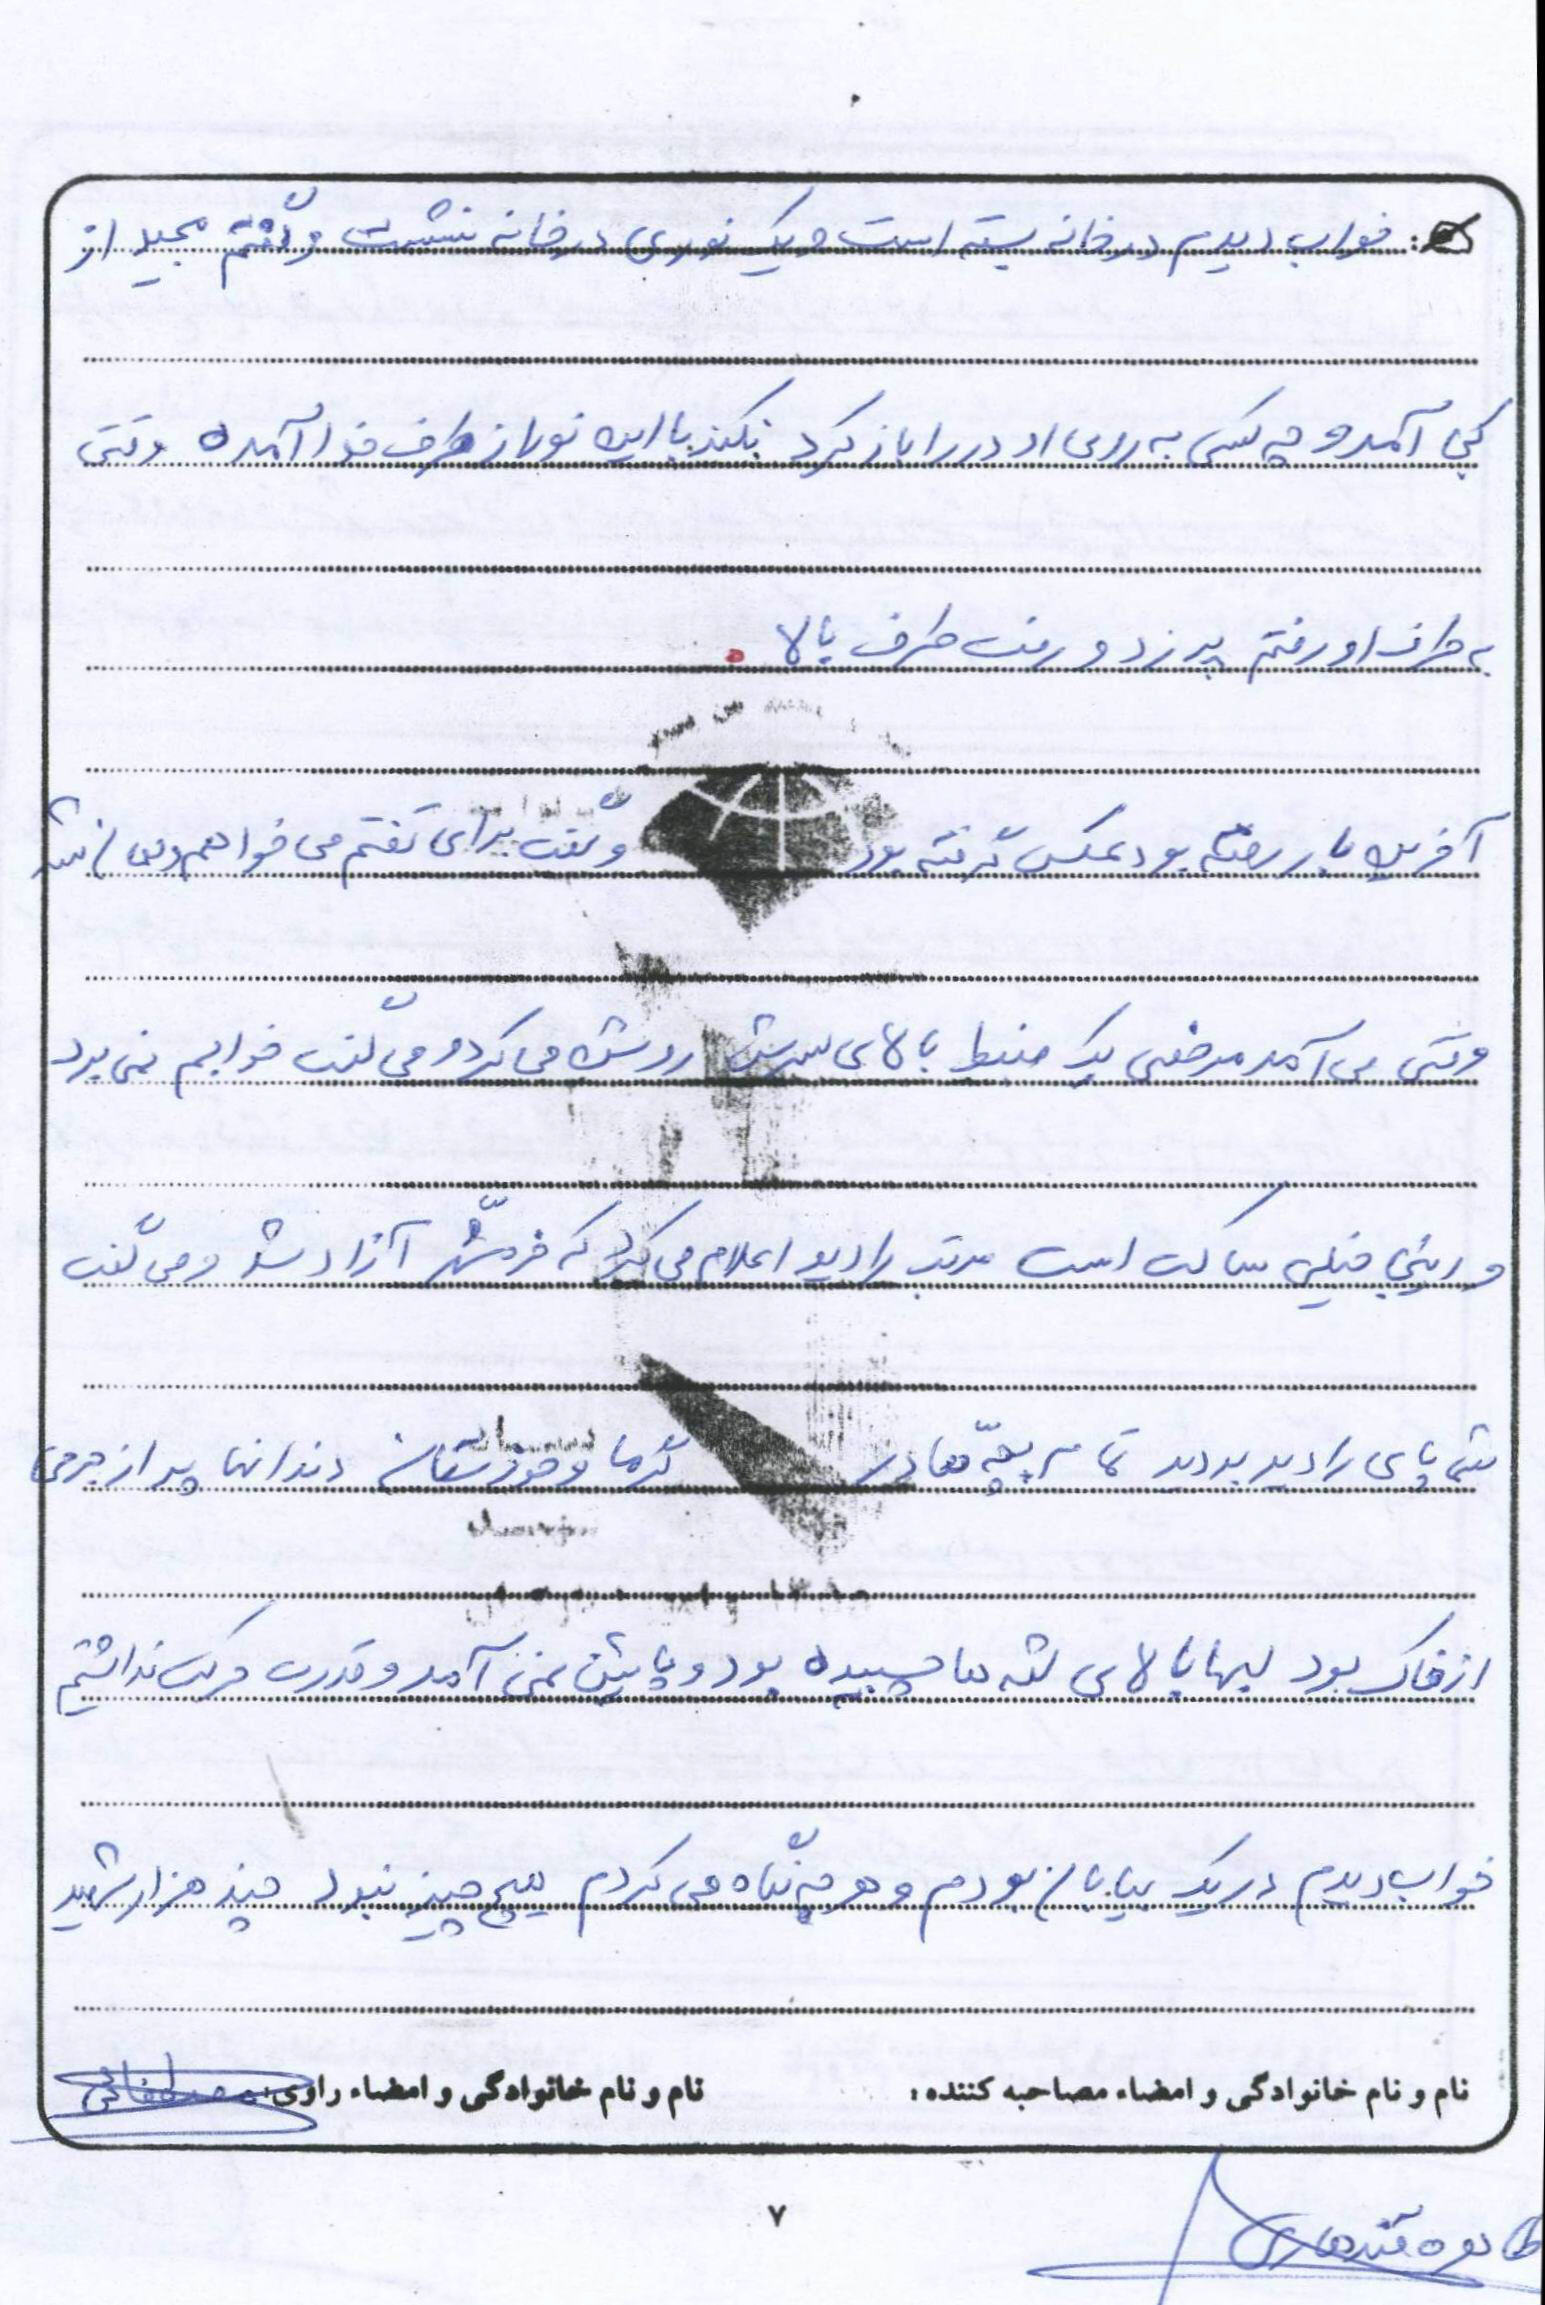 خواب دیدم در خانه بسته است و یک نوری در خانه نشست و گفتم مجید از
کی آمد و چه کسی به روی او در را باز کرد نکند با این نور از طرف خدا آمده وقتی
به طرف او رفتم پر زد و رفت طرف بالا.
آخرین بار رفته بود عکس گرفته بود و گفت برای می خواهم
وقتی می آمد مرخصی یک ضبط بالای سرش روشن می کرد و می گفت خوابم نمی برد
و خیلی ساکت است مرتب رادیو اعلام می کرد که خرمشهر آزاد شد و می گفت
شما پای رادیو بودید تمام بچه ها در گرما و خوزستان دندانها پر از جرمی
از خاک بود لبها بالای لثه ها چسبیده بود و پایین نمی آمد و قدرت حرکت نداشتیم
خواب دیدم در یک بیابان بودم و هر چه نگاه می کردم هیچ چیز نبود چند هزار شهید
نام و نام خانوادگی و امضاء مصاحبه کننده: نام و نام خانوادگی و امضاء راوی:
۷